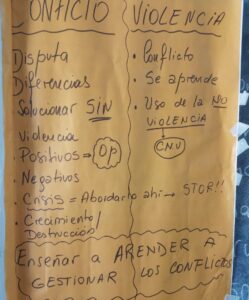 CONFLICTO
Disputa
Diferencias
Solucionar SIN
violencia
• Positivos => Op
• Negativos
• Crisis = Abordarlo ahí → STOP!!
• Crecimiento/
Destrucción
VIOLENCIA
• Conflicto
• Se aprende
• Uso de la NO
VIOLENCIA
CNV
Enseñar a ARENDER A
GESTIONAR LOS CONFLICTOS